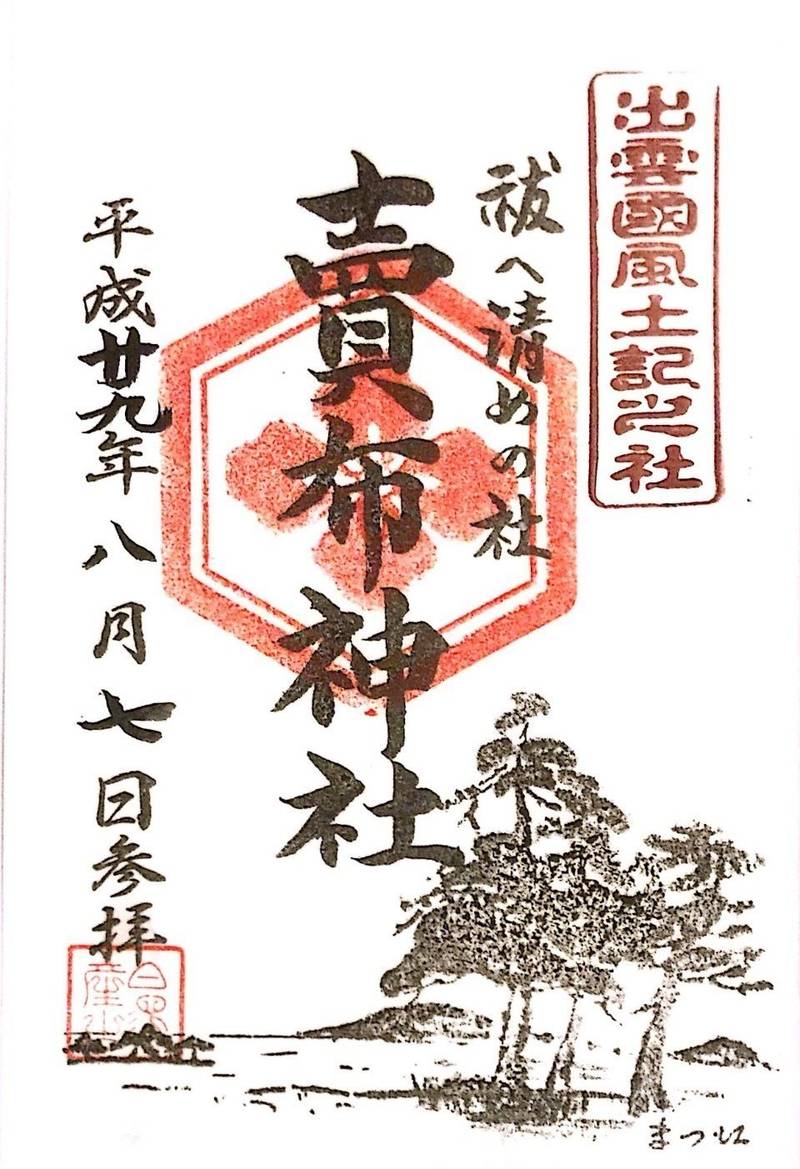 出雲國風土記之社
祓へ清めの社
賣布神社
平成廿九年八月七日参拝
まつ江